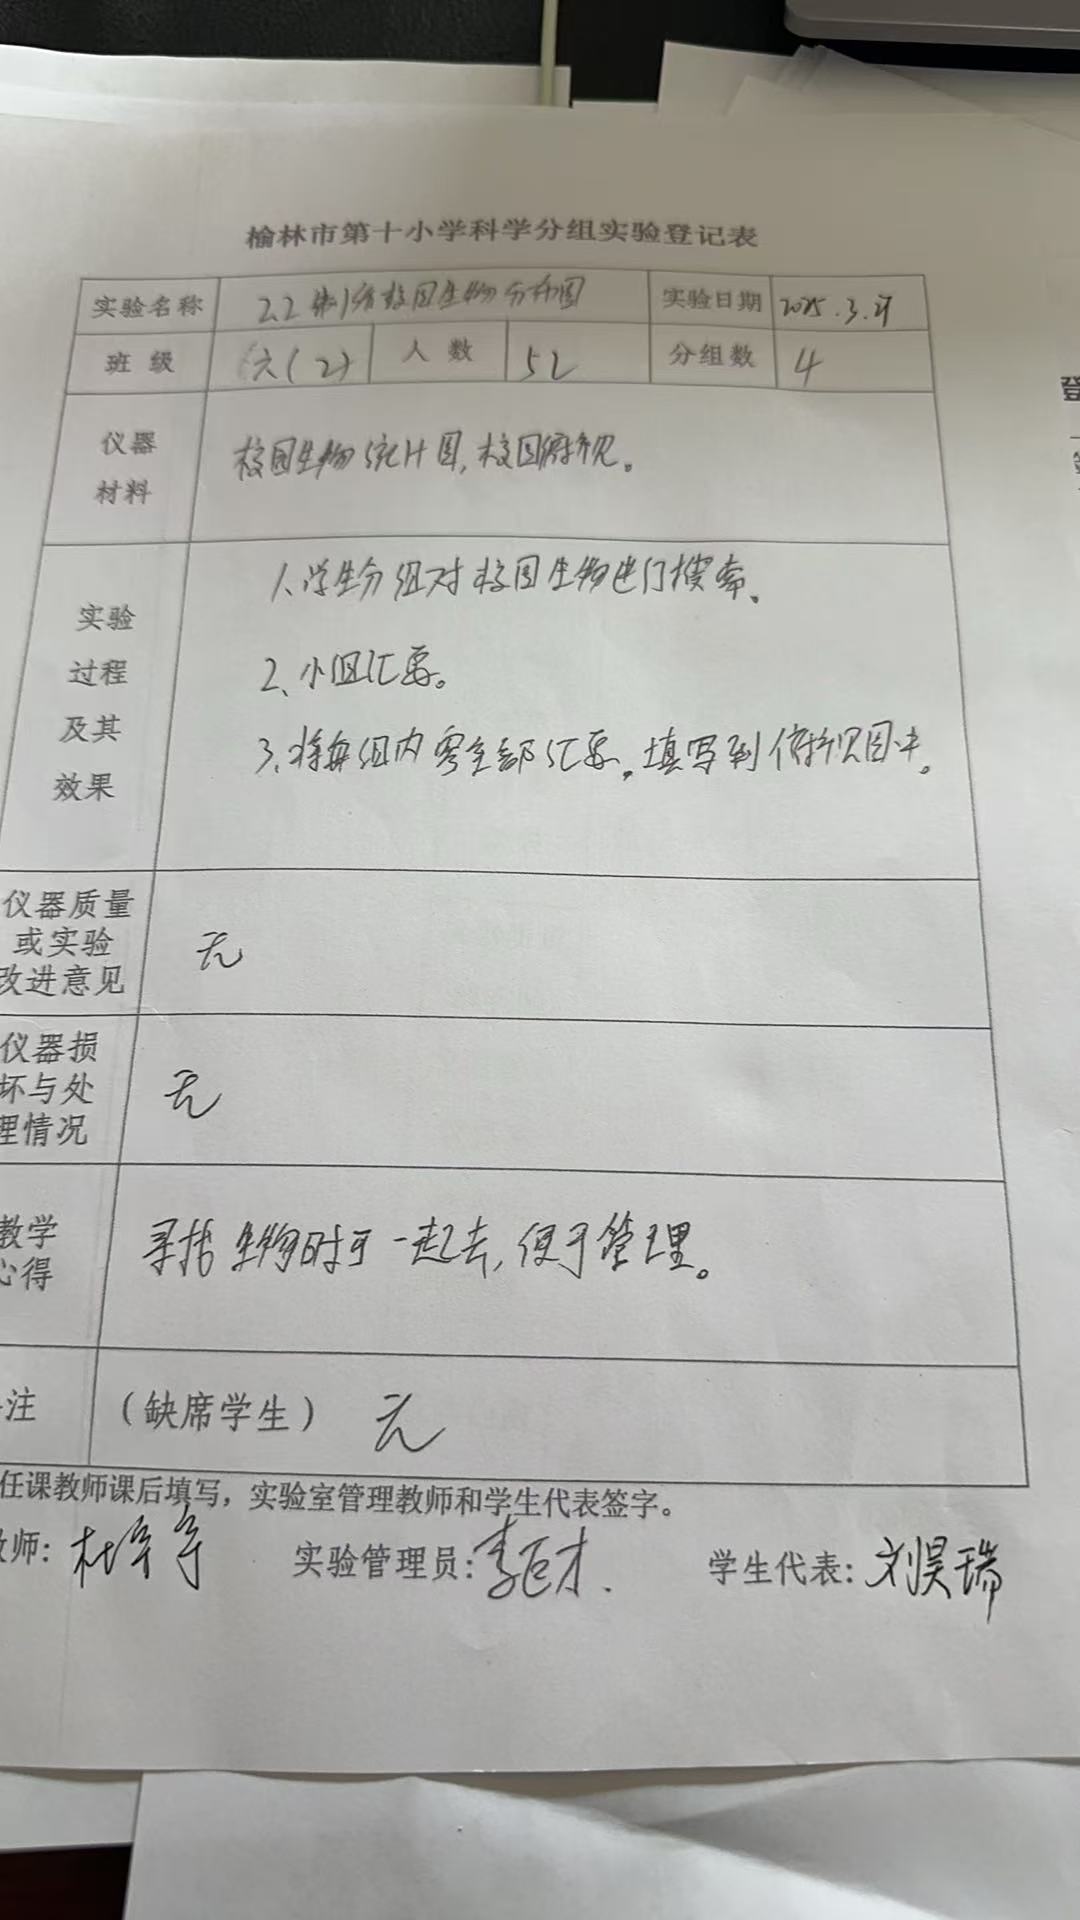 榆林市第十小学科学分组实验登记表
实验名称 2.2 制作校园生物分布图 实验日期 2025.3.
班 级 六(2) 人 数 52 分组数 4
仪器
材料
校园生物统计图,校园俯视。
实验
过程
及其
效果
1、学生分组对校园生物进行搜索。
2、小组汇总。
3、将每组内容全部汇总。填写到俯视图中。
仪器质量
或实验
改进意见
无
仪器损
坏与处
理情况
无
教学
心得
寻找生物时可一起去,便于管理。
注 (缺席学生) 无
任课教师课后填写,实验室管理教师和学生代表签字。
教师: 实验管理员: 学生代表: 刘昊瑞
登